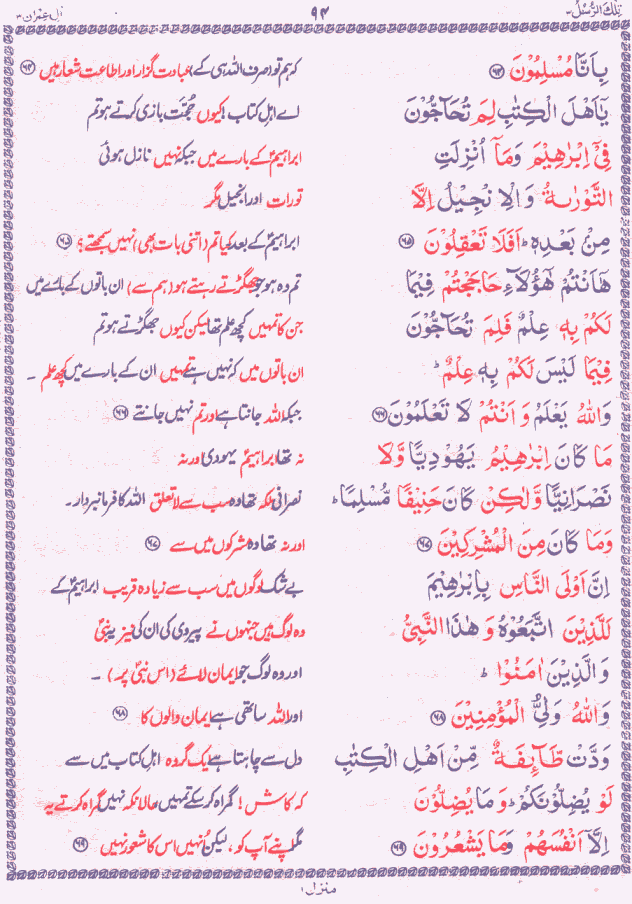 تِلْكَ الرُّسُلُ ۳ ۹۴ اٰلِ عِمْرٰن ۳
بِاَنَّا مُسْلِمُوْنَ ﴿۶۴﴾ کہ ہم تو (صرف اللہ ہی کے) عبادت گزار اور اطاعت شعار ہیں ﴿۶۴﴾
يٰۤاَهْلَ الْكِتٰبِ لِمَ تُحَآجُّوْنَ اے اہلِ کتاب! کیوں حُجّت بازی کرتے ہو تم
فِيْۤ اِبْرٰهِيْمَ وَمَاۤ اُنْزِلَتِ ابراہیمؑ کے بارے میں جبکہ نہیں نازل ہوئی
التَّوْرٰىةُ وَ الْاِنْجِيْلُ اِلَّا تورات اور انجیل مگر
مِنْۢ بَعْدِهٖؕ اَفَلَا تَعْقِلُوْنَ ﴿۶۵﴾ ابراہیمؑ کے بعد، کیا تم (اتنی بات بھی) نہیں سمجھتے؟ ﴿۶۵﴾
هٰۤاَنْتُمْ هٰۤؤُلَآءِ حَاجَجْتُمْ فِيْمَا تم وہ ہو جو جھگڑتے رہتے ہو (ہم سے) ان باتوں کے بارے میں
لَكُمْ بِهٖ عِلْمٌ فَلِمَ تُحَآجُّوْنَ جن کا تمہیں کچھ علم تھا لیکن کیوں جھگڑتے ہو تم
فِيْمَا لَيْسَ لَكُمْ بِهٖ عِلْمٌؕ ان باتوں میں کہ نہیں ہے تمہیں ان کے بارے میں کچھ علم ۔
وَاللّٰهُ يَعْلَمُ وَ اَنْتُمْ لَا تَعْلَمُوْنَ ﴿۶۶﴾ جبکہ اللہ جانتا ہے اور تم نہیں جانتے ﴿۶۶﴾
مَا كَانَ اِبْرٰهِيْمُ يَهُوْدِيًّا وَّلَا نہ تھا ابراہیمؑ یہودی اور نہ
نَصْرَانِيًّا وَّلٰكِنْ كَانَ حَنِيْفًا مُّسْلِمًاؕ نصرانی بلکہ تھا وہ سب سے لاتعلق اللہ کا فرمانبردار۔
وَمَا كَانَ مِنَ الْمُشْرِكِيْنَ ﴿۶۷﴾ اور نہ تھا وہ مشرکوں میں سے ﴿۶۷﴾
اِنَّ اَوْلَى النَّاسِ بِاِبْرٰهِيْمَ بے شک لوگوں میں سب سے زیادہ قریب ابراہیمؑ کے
لَلَّذِيْنَ اتَّبَعُوْهُ وَ هٰذَا النَّبِيُّ وہ لوگ ہیں جنہوں نے پیروی کی ان کی نیز یہ نبیؐ
وَ الَّذِيْنَ اٰمَنُوْاؕ اور وہ لوگ جو ایمان لائے (اس نبیؐ پر) ۔
وَاللّٰهُ وَلِيُّ الْمُؤْمِنِيْنَ ﴿۶۸﴾ اور اللہ ساتھی ہے ایمان والوں کا ﴿۶۸﴾
وَدَّتْ طَّآىِٕفَةٌ مِّنْ اَهْلِ الْكِتٰبِ دل سے چاہتا ہے ایک گروہ اہلِ کتاب میں سے
لَوْ يُضِلُّوْنَكُمْؕ وَ مَا يُضِلُّوْنَ کہ کاش! گمراہ کر سکے تمہیں حالانکہ نہیں گمراہ کرتے یہ
اِلَّاۤ اَنْفُسَهُمْ وَمَا يَشْعُرُوْنَ ﴿۶۹﴾ مگر اپنے آپ کو، لیکن اُنہیں اس کا شعور نہیں ﴿۶۹﴾
منزل ۱